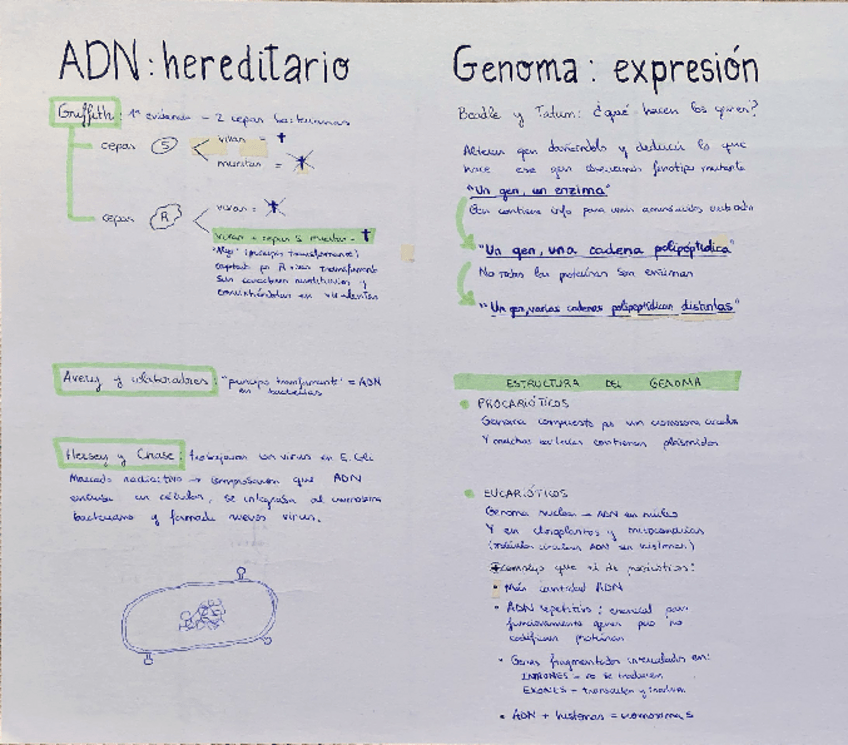 ADN: hereditario
Griffith: 1ª evidencia - 2 cepas bacterianas
cepas S
vivas = †
muertas = †
cepas R
vivas = †
vivas + cepas S muertas = †
"Algo" (principio transformante)
captado por R vivas transformando
sus caracteres
convirtiéndolas en virulentas
Avery y colaboradores: "principio transformante" = ADN
en bacterias
Hersey y Chase: trabajaron con virus en E. Coli
Marcado radiactivo → comprobaron que ADN
en células, se integraba al cromosoma
bacteriano y formaba nuevos virus.
Genoma: expresión
Beadle y Tatum: ¿qué hacen los genes?
Alteran gen dañándolo y deducir lo que
hace ese gen observando fenotipo mutante
"Un gen, un enzima"
Gen contiene info para unir aminoácidos
"Un gen, una cadena polipeptídica"
No todas las proteínas son enzimas
"Un gen, varias cadenas polipeptídicas distintas"
ESTRUCTURA DEL GENOMA
PROCARIÓTICOS
Genoma compuesto por un cromosoma circular
Y muchas bacterias contienen plásmidos
EUCARIÓTICOS
Genoma nuclear → ADN en núcleo
Y en cloroplastos y mitocondrias
(moléculas circulares ADN sin histonas)
+complejo que el de procarióticos:
• Más cantidad ADN
• ADN repetitivo: esencial para
funcionamiento genes pero no
codifican proteínas
• Genes fragmentados intercalados en:
INTRONES - no se traducen
EXONES - transcriben y traducen
• ADN + histonas = cromosomas